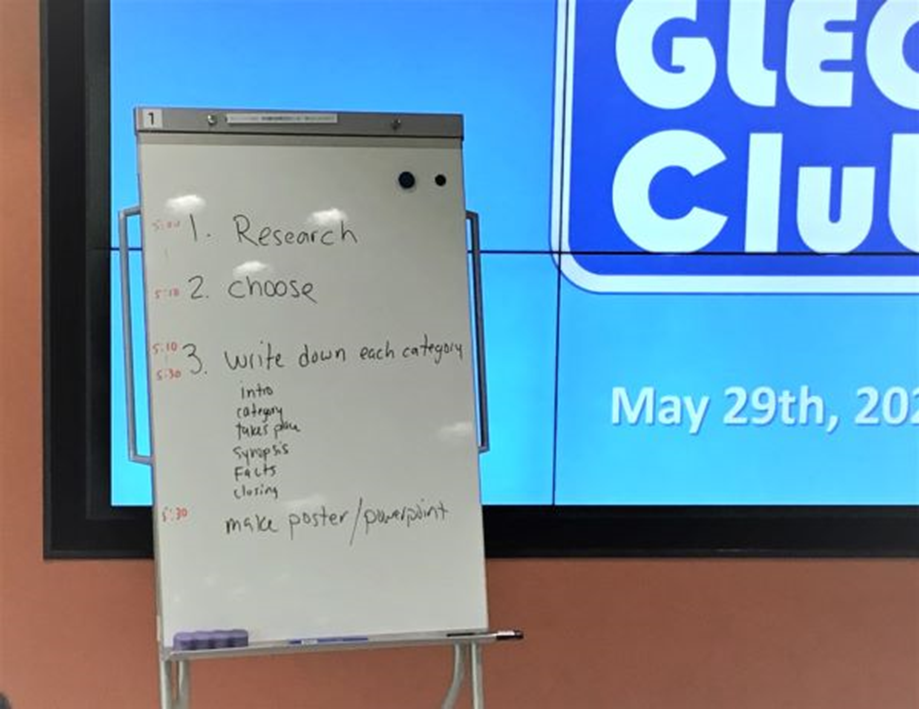 1
5:00 1. Research
5:10 2. choose
5:10 3. write down each category
5:30
intro
category
takes place
synopsis
Facts
closing
5:30 make poster/powerpoint
GLEC
Club
May 29th, 202